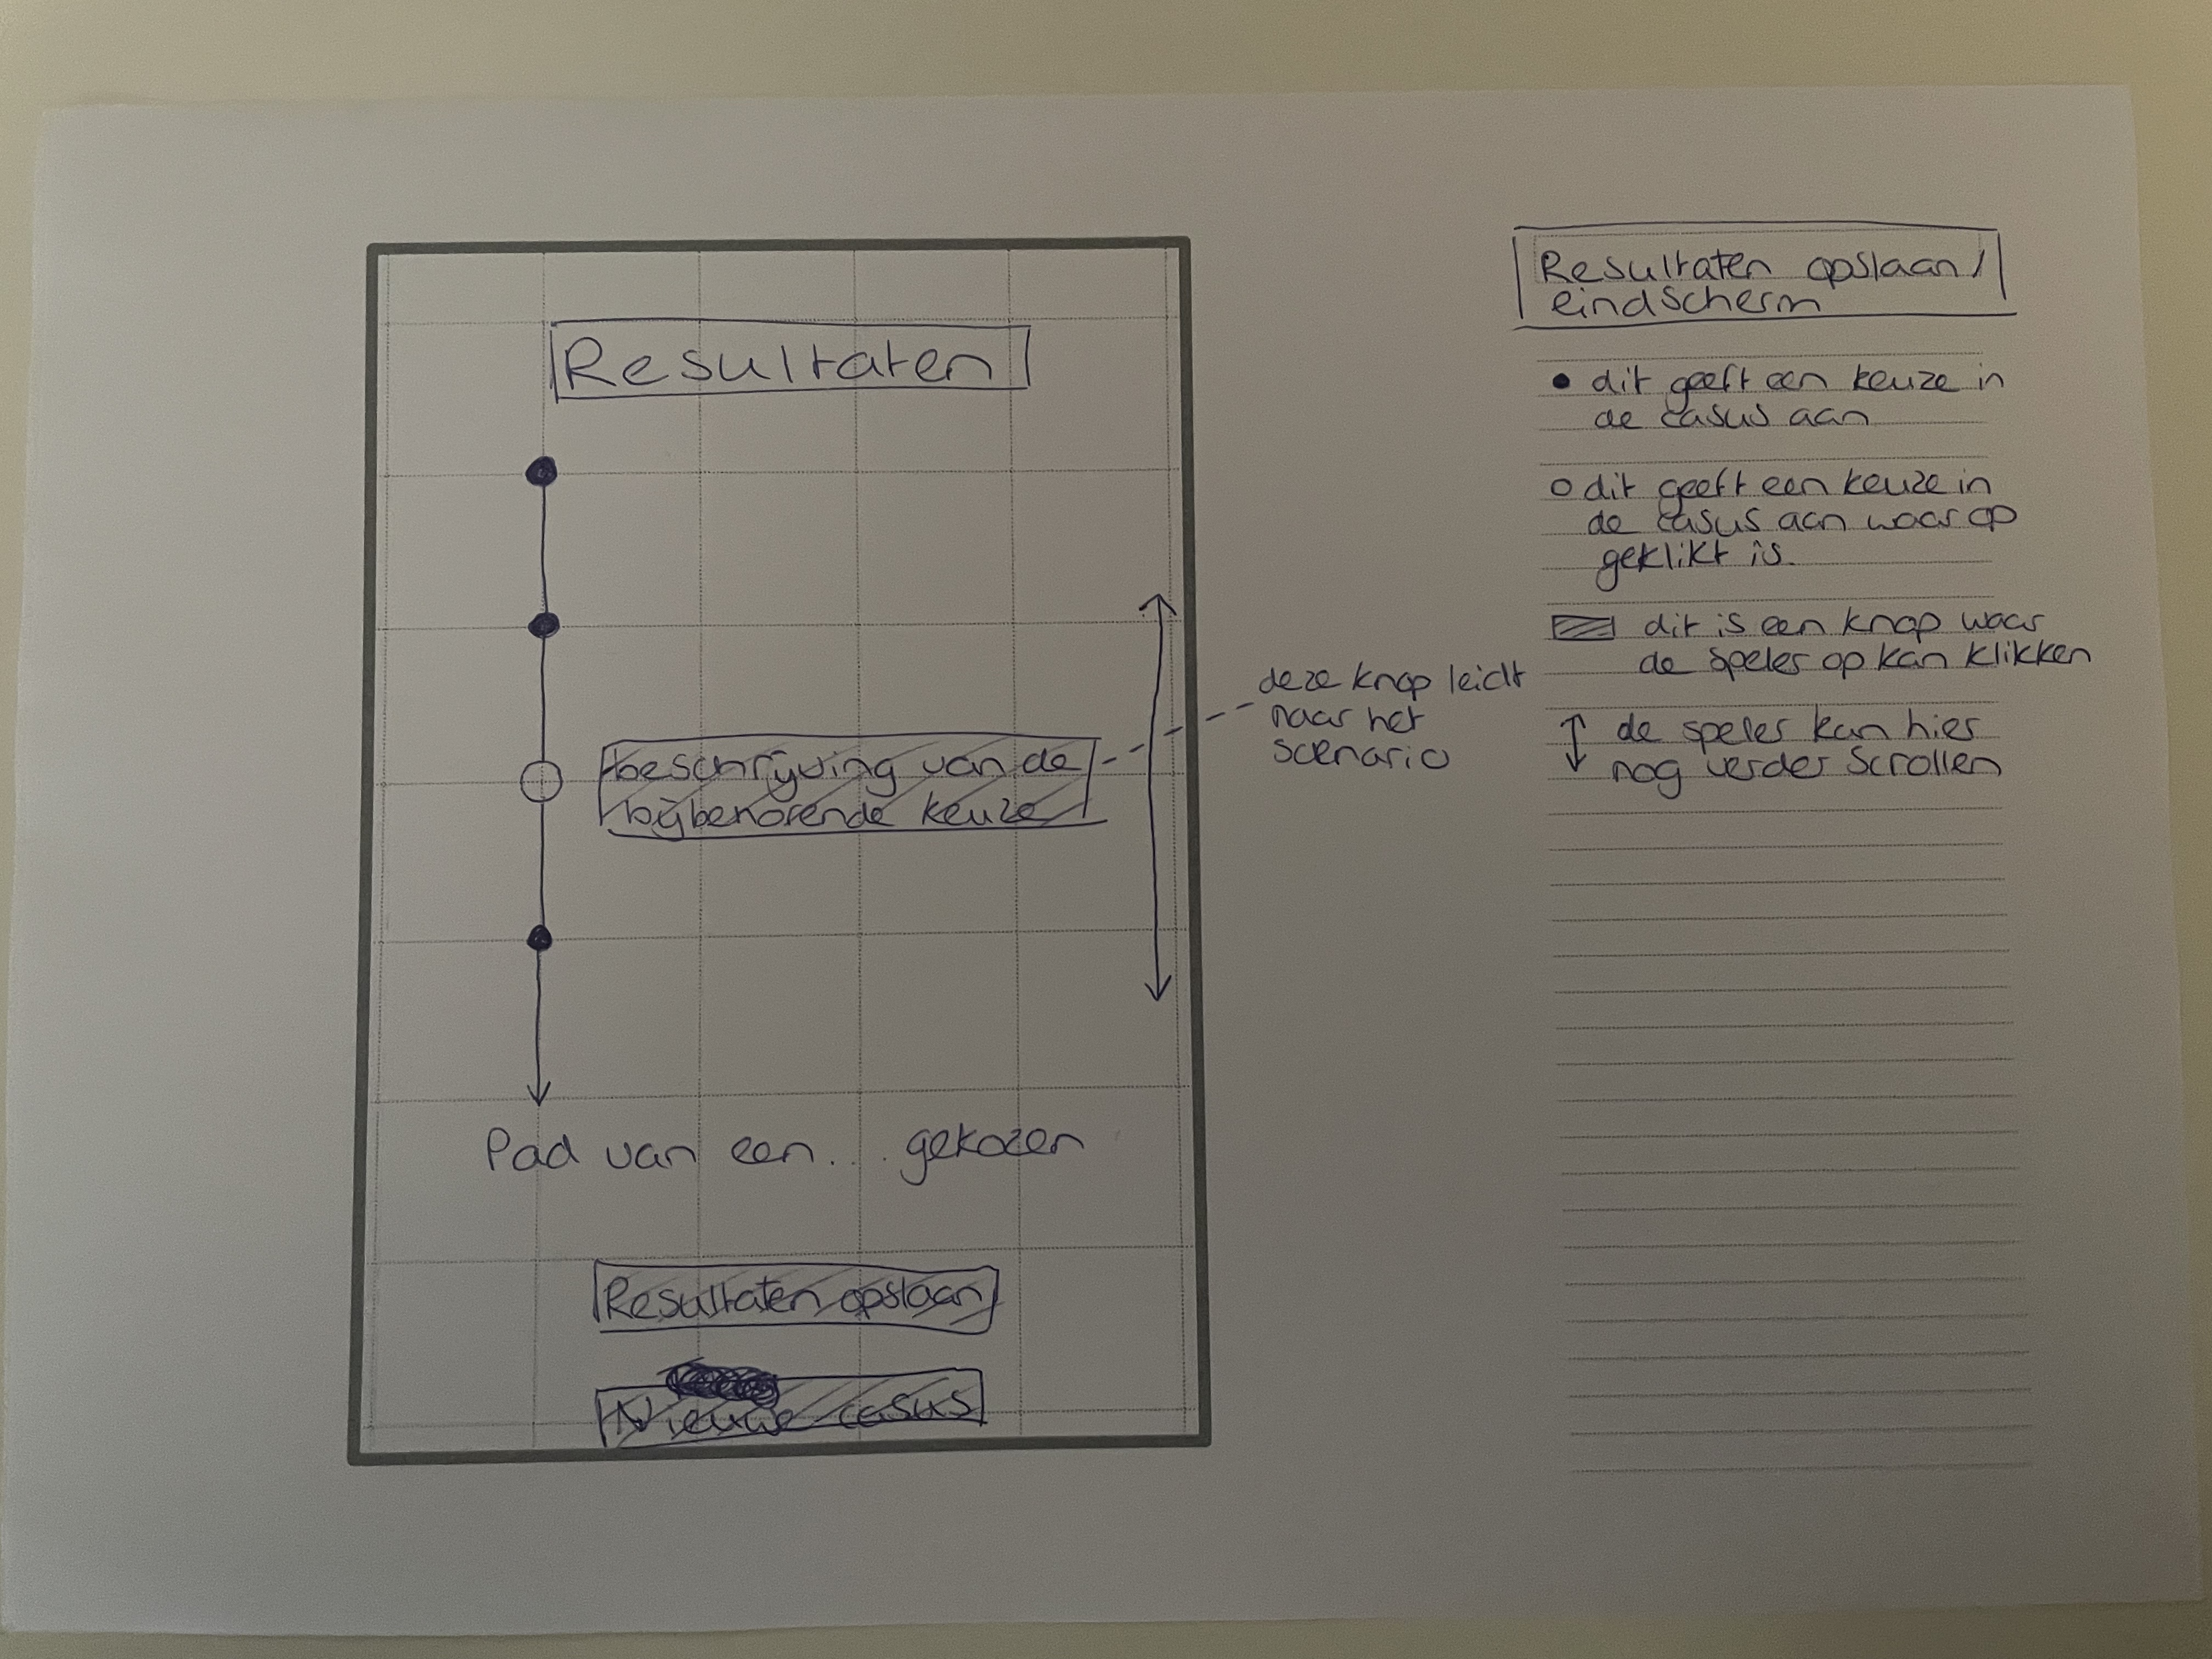 Resultaten
beschrijving van de
bijbehorende keuze
deze knop leidt
naar het
scenario
Pad van een... gekozen
Resultaten opslaan
Nieuwe casus
Resultaten opslaan/
eindscherm
dit geeft een keuze in
de casus aan
dit geeft een keuze in
de casus aan waar op
geklikt is.
dit is een knop waar
de speler op kan klikken
de speler kan hier
nog verder scrollen